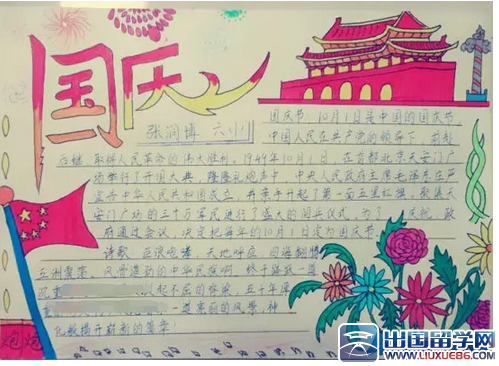 国庆
张润博 六(1)
国庆节,10月1日是中国的国庆节
中国人民在共产党的领导下,前赴
后继,取得人民革命的伟大胜利,1949年10月1日,在首都北京天安门广
场举行了开国大典,隆隆礼炮声中,中央人民政府主席毛泽东在庄
严宣告中华人民共和国成立,并亲手升起了第一面五星红旗,聚集天
安门广场的三十万军民进行了盛大的阅兵仪式,为了 庆祝,政
府通过会议,决定把每年的10月1日定为国庆节。
诗歌 巨浪
天地呼应,四海翻腾
五洲
中华民族啊,终于
一道
起不屈的脊梁,五千年
一道亮丽的风景,神
崭新的篇章!
出国留学网
WWW.LIUXUE86.COM